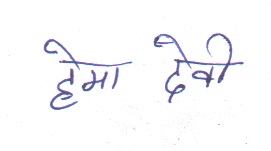 हेमा देवी